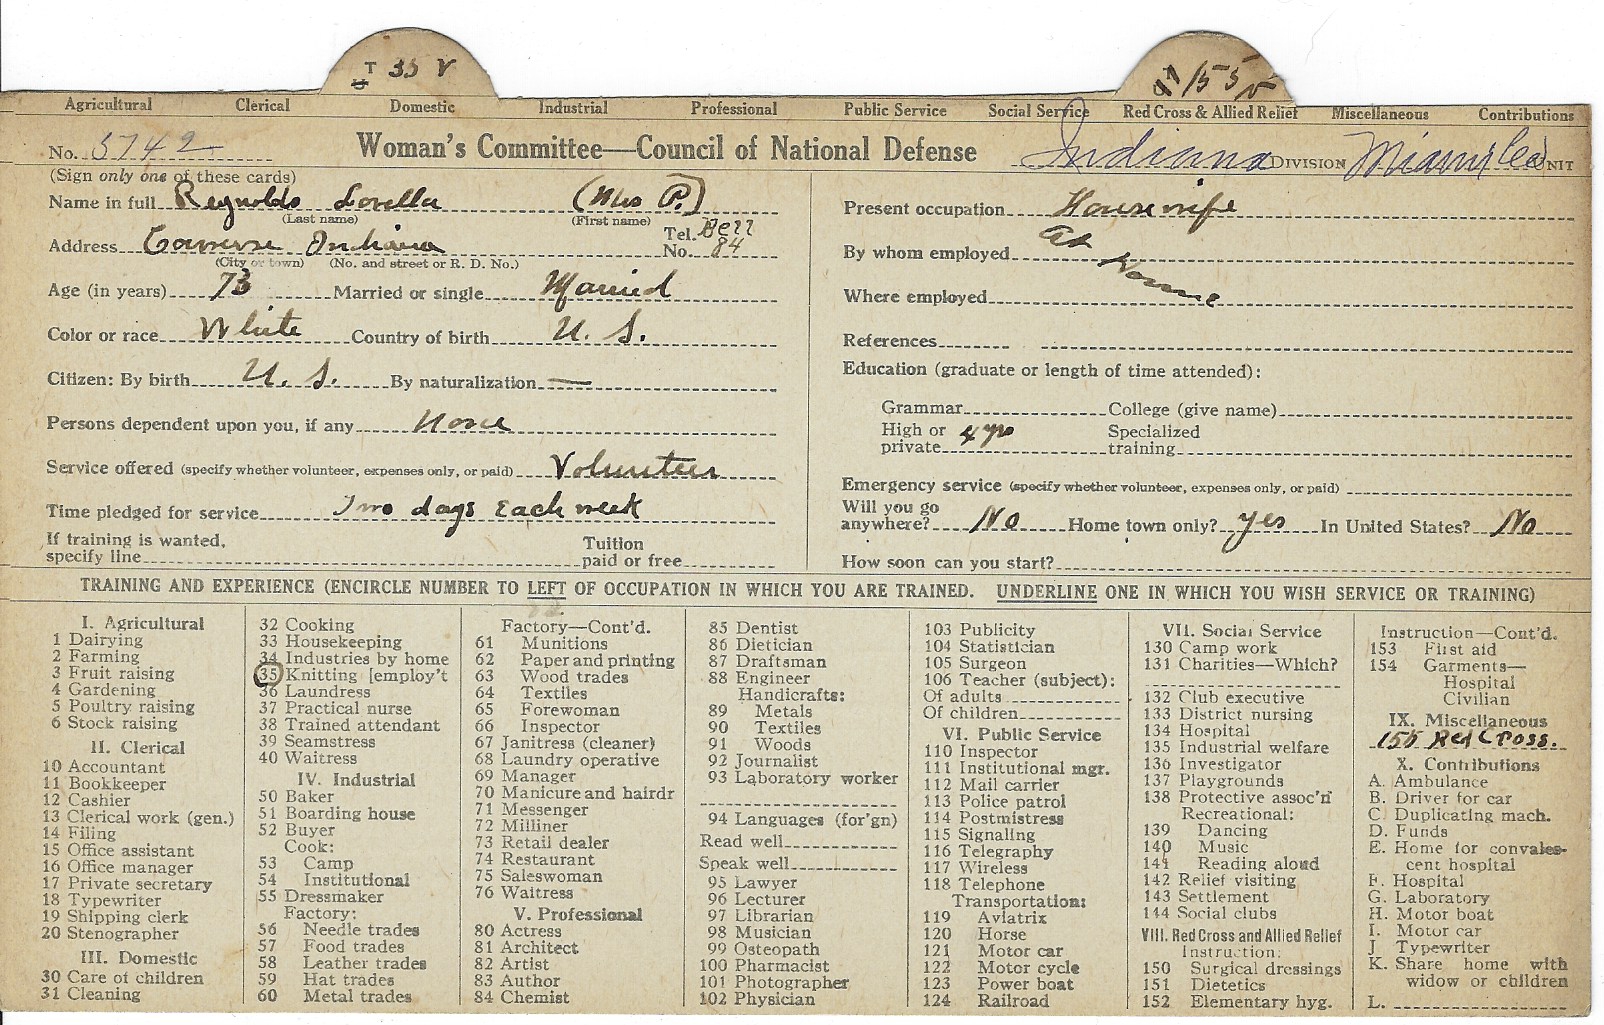 T 35 V
155 V
Agricultural Clerical Domestic Industrial Professional Public Service Social Service Red Cross & Allied Relief Miscellaneous Contributions
No. 5742 Woman's Committee—Council of National Defense Indiana DIVISION Miami Co UNIT
(Sign only one of these cards)
Name in full Reynolds Lovella (Mrs P.)
(Last name) (First name)
Address Converse Indiana Tel. No. Bell 84
(City or town) (No. and street or R. D. No.)
Age (in years) 73 Married or single Married
Color or race White Country of birth U. S.
Citizen: By birth U. S. By naturalization —
Persons dependent upon you, if any None
Service offered (specify whether volunteer, expenses only, or paid) Volunteer
Time pledged for service Two days Each week
If training is wanted, specify line Tuition paid or free
Present occupation Housewife
By whom employed at
Where employed Home
References
Education (graduate or length of time attended):
Grammar College (give name)
High or private 4 yrs Specialized training
Emergency service (specify whether volunteer, expenses only, or paid)
Will you go anywhere? No Home town only? yes In United States? No
How soon can you start?
TRAINING AND EXPERIENCE (ENCIRCLE NUMBER TO LEFT OF OCCUPATION IN WHICH YOU ARE TRAINED. UNDERLINE ONE IN WHICH YOU WISH SERVICE OR TRAINING)
I. Agricultural
1 Dairying
2 Farming
3 Fruit raising
4 Gardening
5 Poultry raising
6 Stock raising
II. Clerical
10 Accountant
11 Bookkeeper
12 Cashier
13 Clerical work (gen.)
14 Filing
15 Office assistant
16 Office manager
17 Private secretary
18 Typewriter
19 Shipping clerk
20 Stenographer
III. Domestic
30 Care of children
31 Cleaning
32 Cooking
33 Housekeeping
34 Industries by home
35 Knitting [employ't
36 Laundress
37 Practical nurse
38 Trained attendant
39 Seamstress
40 Waitress
IV. Industrial
50 Baker
51 Boarding house
52 Buyer
Cook:
53 Camp
54 Institutional
55 Dressmaker
Factory:
56 Needle trades
57 Food trades
58 Leather trades
59 Hat trades
60 Metal trades
Factory—Cont'd.
61 Munitions
62 Paper and printing
63 Wood trades
64 Textiles
65 Forewoman
66 Inspector
67 Janitress (cleaner)
68 Laundry operative
69 Manager
70 Manicure and hairdr
71 Messenger
72 Milliner
73 Retail dealer
74 Restaurant
75 Saleswoman
76 Waitress
V. Professional
80 Actress
81 Architect
82 Artist
83 Author
84 Chemist
85 Dentist
86 Dietician
87 Draftsman
88 Engineer
Handicrafts:
89 Metals
90 Textiles
91 Woods
92 Journalist
93 Laboratory worker
94 Languages (for'gn)
Read well
Speak well
95 Lawyer
96 Lecturer
97 Librarian
98 Musician
99 Osteopath
100 Pharmacist
101 Photographer
102 Physician
103 Publicity
104 Statistician
105 Surgeon
106 Teacher (subject):
Of adults
Of children
VI. Public Service
110 Inspector
111 Institutional mgr.
112 Mail carrier
113 Police patrol
114 Postmistress
115 Signaling
116 Telegraphy
117 Wireless
118 Telephone
Transportation:
119 Aviatrix
120 Horse
121 Motor car
122 Motor cycle
123 Power boat
124 Railroad
VII. Social Service
130 Camp work
131 Charities—Which?
132 Club executive
133 District nursing
134 Hospital
135 Industrial welfare
136 Investigator
137 Playgrounds
138 Protective assoc'n
Recreational:
139 Dancing
140 Music
141 Reading aloud
142 Relief visiting
143 Settlement
144 Social clubs
VIII. Red Cross and Allied Relief
Instruction:
150 Surgical dressings
151 Dietetics
152 Elementary hyg.
Instruction—Cont'd.
153 First aid
154 Garments—
Hospital
Civilian
IX. Miscellaneous
155 Red Cross.
X. Contributions
A. Ambulance
B. Driver for car
C Duplicating mach.
D. Funds
E. Home for convalescent hospital
F. Hospital
G. Laboratory
H. Motor boat
I. Motor car
J Typewriter
K. Share home with
widow or children
L.